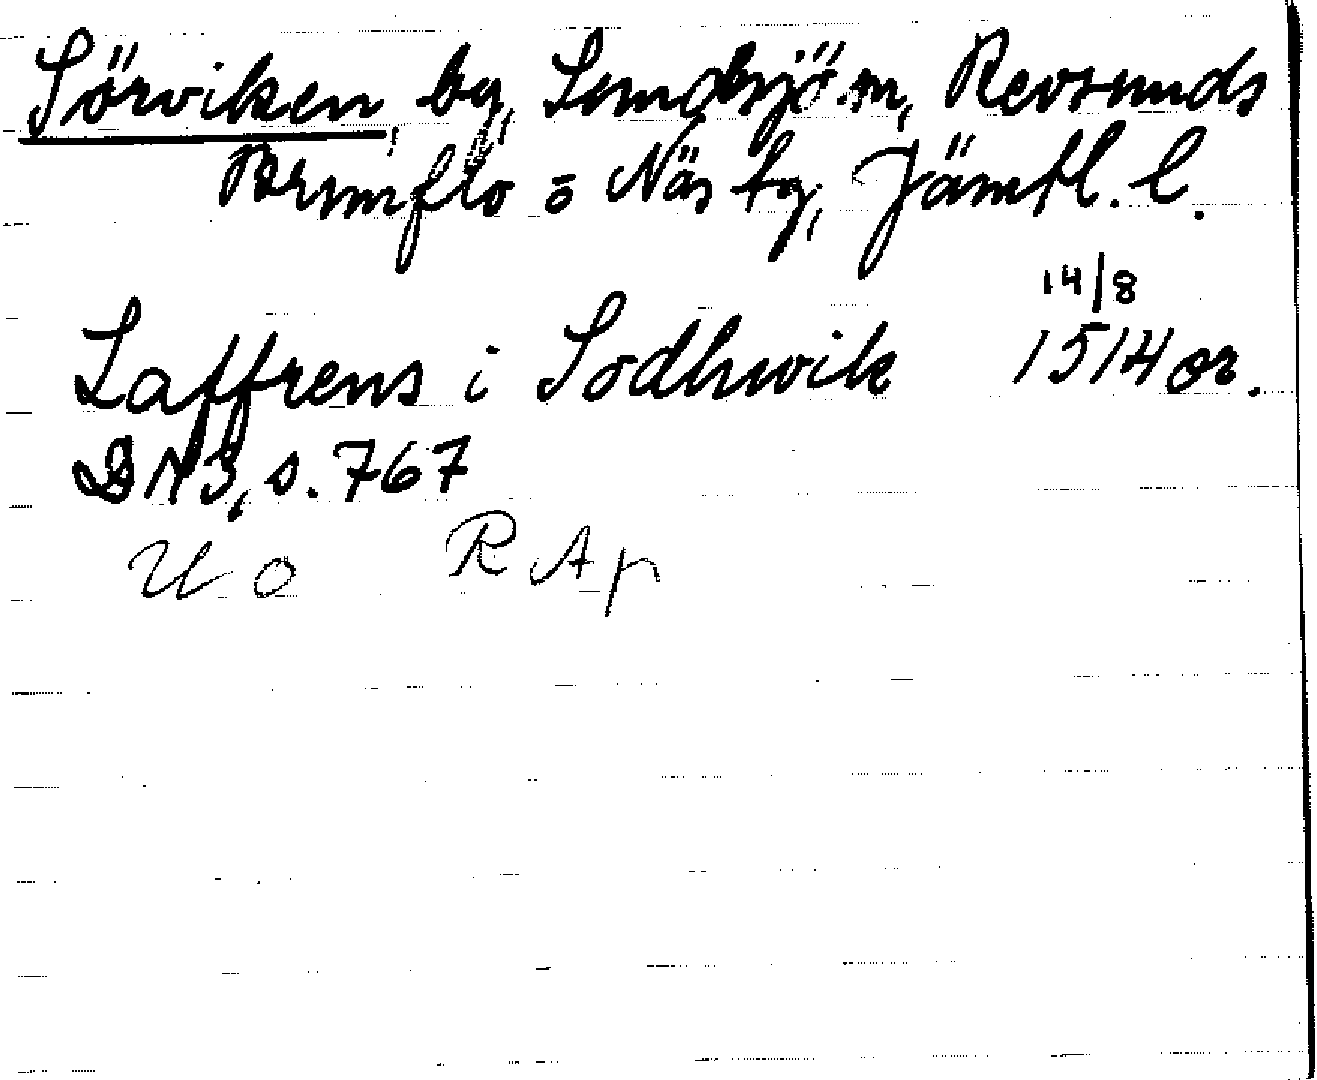 Sörviken, by, Sundsjö sn, Revsunds
Brunflo o Näs tg, Jämtl. l.
14/8
Laffrens i Sodhwik 1514 or.
DN 3, s. 767
U o R Ap